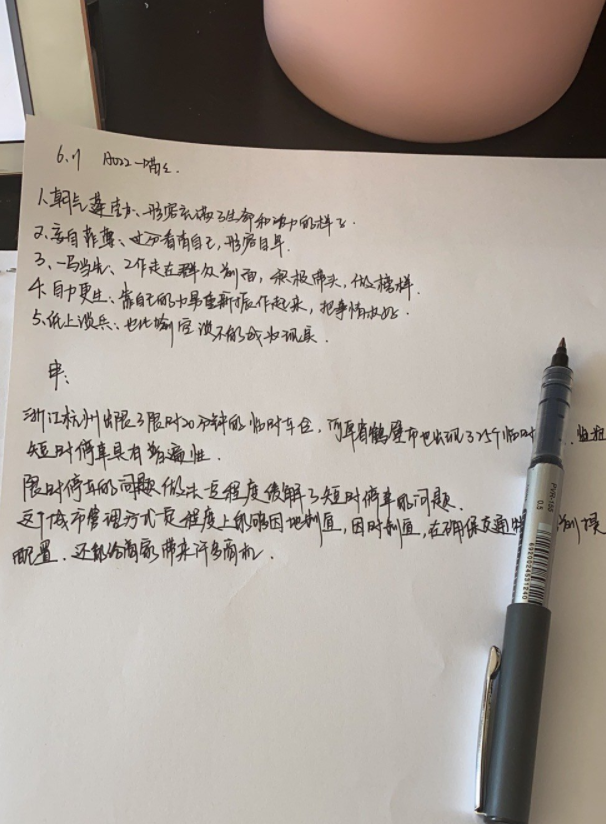 6.17
1.朝气蓬勃、形容充满了生命和活力的样子.
2.妄自菲薄、过分看轻自己，形容自卑.
3、一马当先、工作走在群众前面，积极带头，做榜样.
4.自力更生、靠自己的力量重新振作起来，把事情做好.
5.纸上谈兵、也比喻空谈不能成为现实.
申:
浙江杭州出现了限时20分钟的临时车位，河南省鹤壁市也出现了25个临时
短时停车具有普遍性.
限时停车的问题做法一定程度缓解了短时停车的问题.
这个城市管理方式一定程度上能够因地制宜，因时制宜，在确保交通
配置.还能给商家带来许多商机.
PVR-100
0.5
4970024631240